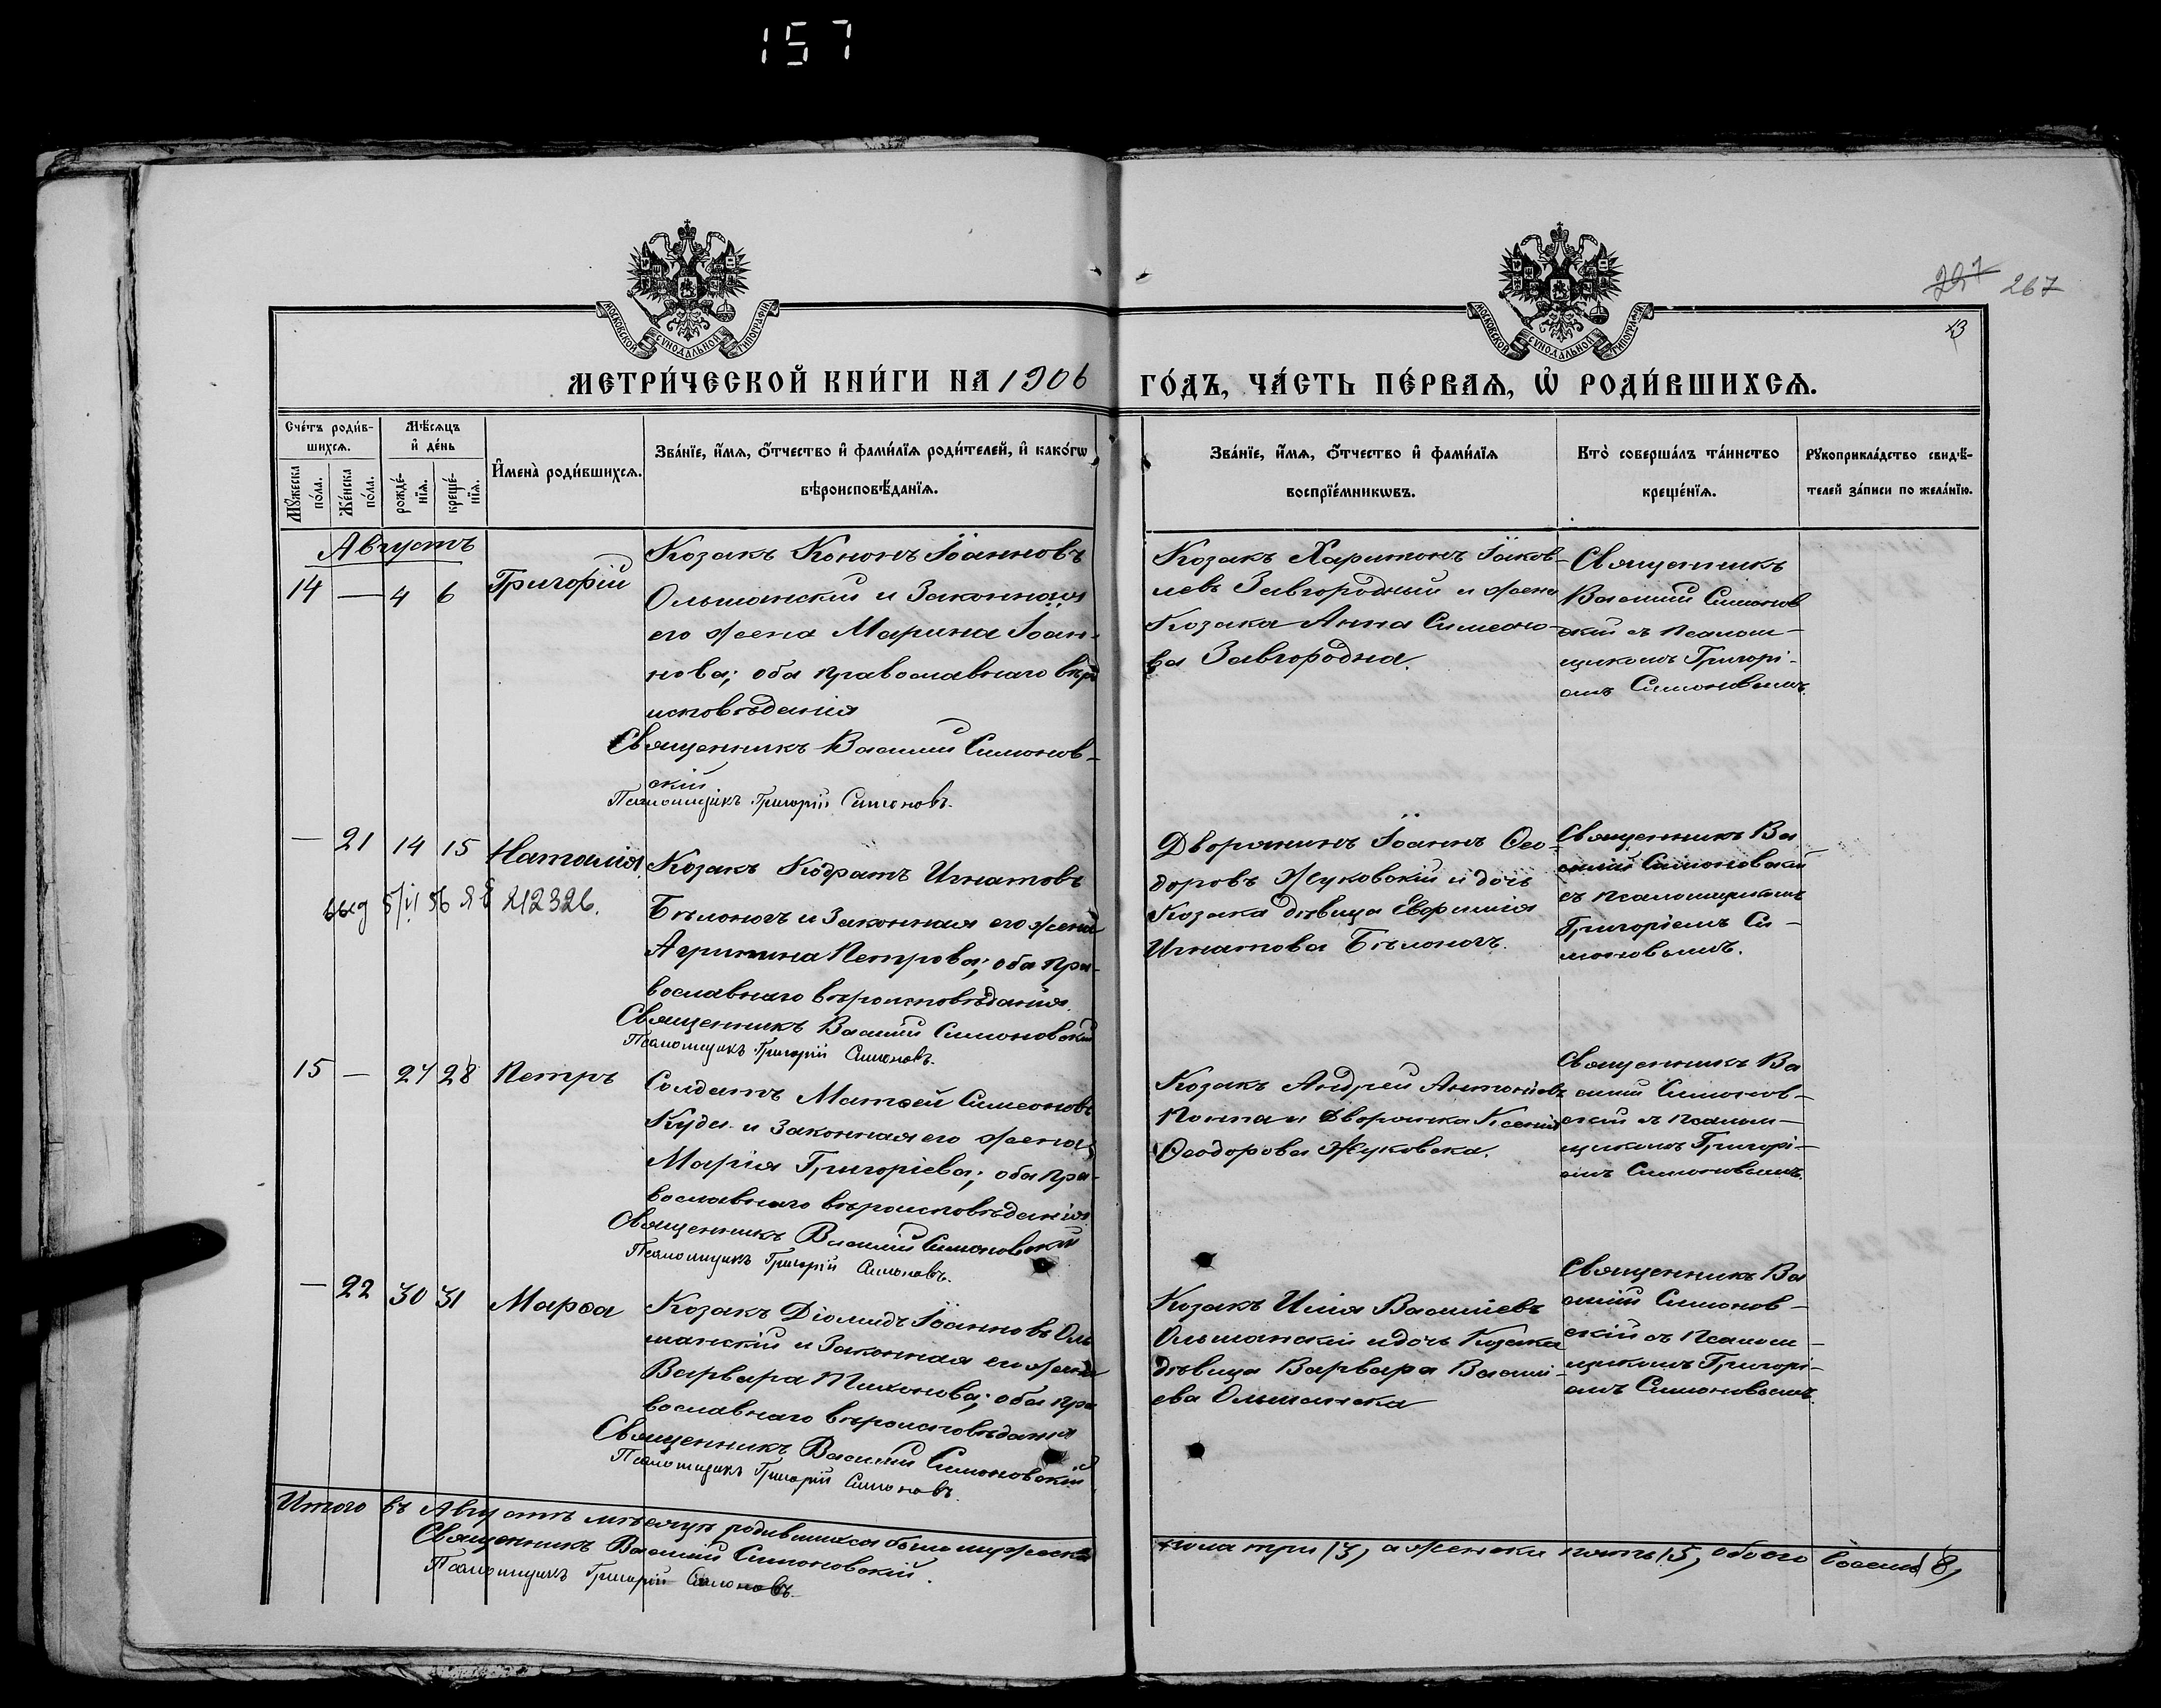 157
МОСКОВСКОЙ СУНОДАЛЬНОЙ ТИПОГРАФИИ
МОСКОВСКОЙ СУНОДАЛЬНОЙ ТИПОГРАФИИ
267
МЕТРИ́ЧЕСКОЙ КНИ́ГИ НА 1906 ГО́ДЪ, ЧА́СТЬ ПЕ́РВАѦ, Ѡ РОДИ́ВШИХСѦ.
Сче́тъ роди́в-
шихсѧ.
Мѣ́сѧцъ
и҆ де́нь
Мꙋ́жеска по́ла.
Же́нска по́ла.
рожде́-
нїѧ.
креще́-
нїѧ.
И҆мена̀ роди́вшихсѧ.
Зва́нїе, и҆́мѧ, ѻ҆́тчество и҆ фами́лїѧ роди́телей, и҆ како́гѡ
вѣроисповѣ́данїѧ.
Зва́нїе, и҆́мѧ, ѻ҆́тчество и҆ фами́лїѧ
воспрїе́мникѡвъ.
Кто̀ соверша́лъ та́инство
креще́нїѧ.
Рꙋкоприкла́дство свидѣ́-
телей за́писи по жела́нїю.
Августъ
14 — 4 6 Григорій
Козакъ Кононъ Іоанновъ
Ольшанскій и законная
его жена Марина Іоан-
нова; оба православнаго вѣро
исповѣданія
Священникъ Василій Симонов-
скій
Псаломщикъ Григорій Симоновъ.
Козакъ Харитонъ Іаков-
левъ Завгородный и жена
Козака Анна Симеоно-
ва Завгородна.
Священникъ
Василій Симонов
скій съ псалом-
щикомъ Григорі-
емъ Симоновымъ.
— 21 14 15 Наталія
212326.
Козакъ Кодратъ Игнатовъ
Бѣлоногъ и законная его жена
Агрипина Петрова; оба пра-
вославнаго вѣроисповѣданія.
Священникъ Василій Симоновскій
Псаломщикъ Григорій Симоновъ.
Дворянинъ Іоаннъ Ѳео-
доровъ Жуковскій и дочь
Козака дѣвица Евфимія
Игнатова Бѣлоногъ.
Священникъ Ва
силій Симоновскій
съ псаломщикомъ
Григоріемъ Си-
моновымъ.
15 — 27 28 Петръ
Солдатъ Матѳей Симеоновъ
Куда и законная его жена
Марія Григоріева; оба пра-
вославнаго вѣроисповѣданія
Священникъ Василій Симоновскій
Псаломщикъ Григорій Симоновъ.
Козакъ Андрей Антоніевъ
и дворянка Ксенія
Ѳеодорова Жуковска.
Священникъ Ва
силій Симонов-
скій съ псалом-
щикомъ Григорі-
емъ Симоновымъ.
— 22 30 31 Марѳа
Козакъ Діомидъ Іоанновъ Оль
шанскій и законная его жена
Варвара Тихонова; оба пра
вославнаго вѣроисповѣданія
Священникъ Василій Симоновскій
Псаломщикъ Григорій Симоновъ.
Козакъ Илія Василіевъ
Ольшанскій и дочь Козака
дѣвица Варвара Васили-
ева Ольшанска
Священникъ Ва
силій Симонов-
скій съ псалом-
щикомъ Григорі-
емъ Симоновымъ.
Итого въ Августѣ мѣсяцѣ родившихся было мужеска
пола три /3/, а женска пять /5/, обоего восемь /8/
Священникъ Василій Симоновскій.
Псаломщикъ Григорій Симоновъ.